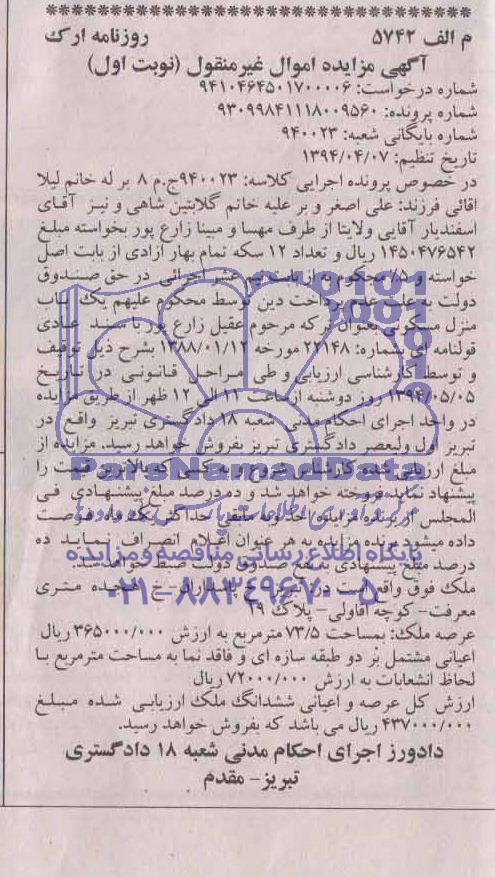 م الف ۵۷۴۲ روزنامه ارک
آگهی مزایده اموال غیرمنقول (نوبت اول)
شماره درخواست: ۹۴۱۰۴۶۴۵۰۱۷۰۰۰۰۶
شماره پرونده: ۹۳۰۹۹۸۴۱۱۱۸۰۰۹۵۶۰
شماره بایگانی شعبه: ۹۴۰۰۲۳
تاریخ تنظیم: ۱۳۹۴/۰۴/۰۷
در خصوص پرونده اجرایی کلاسه: ۹۴۰۰۲۳ج.م ۸ بر له خانم لیلا
اقائی فرزند: علی اصغر و بر علیه خانم گلابتین شاهی و نیز آقای
اسفندیار آقایی ولایتا از طرف مهسا و مبینا زارع پور بخواسته مبلغ
۱۴۵۰۴۷۶۵۴۲ ریال و تعداد ۱۲ سکه تمام بهار ازادی از بابت اصل
خواسته و ۵/. محکوم به از بابت نیم عشر اجرائی در حق صندوق
دولت به علت عدم پرداخت دین توسط محکوم علیهم یک باب
منزل مسکونی بعنوان ترکه مرحوم عقیل زارع پور با سند عادی
قولنامه ای شماره: ۲۲۱۴۸ مورخه ۱۳۸۸/۰۱/۱۲ بشرح ذیل توقیف
و توسط کارشناسی ارزیابی و طی مراحل قانونی در تاریخ
۱۳۹۴/۰۵/۰۵ روز دوشنبه از ساعت ۱۱ الی ۱۲ ظهر از طریق مزایده
در واحد اجرای احکام مدنی شعبه ۱۸ دادگستری تبریز واقع در
تبریز اول ولیعصر دادگستری تبریز بفروش خواهد رسید. مزایده از
مبلغ ارزیابی شده کارشناس شروع و به کسی که بالاترین قیمت را
ParsNamadData
پیشنهاد نماید فروخته خواهد شد و ده درصد مبلغ پیشنهادی فی
المجلس از برنده مزایده اخذ و به مابقی حداکثر یک ماه فرصت
داده میشود برنده مزایده به هر عنوان اعلام انصراف نماید ده
پایگاه اطلاع رسانی مناقصه و مزایده
درصد مبلغ پیشنهادی به نفع صندوق دولت ضبط خواهد شد.
۰۲۱-۸۸۳۴۹۶۷۰-۵
ملک فوق واقع است در تبریز- پاسداران-خ هیجده متری
معرفت- کوچه آقاولی- پلاک ۲۹
عرصه ملک: بمساحت ۷۳/۵ مترمربع به ارزش ۳۶۵۰۰۰/۰۰۰ ریال
اعیانی مشتمل بر دو طبقه سازه ای و فاقد نما به مساحت مترمربع با
لحاظ انشعابات به ارزش ۷۲۰۰۰/۰۰۰ ریال
ارزش کل عرصه و اعیانی ششدانگ ملک ارزیابی شده مبلغ
۴۳۷۰۰۰/۰۰۰ ریال می باشد که بفروش خواهد رسید.
دادورز اجرای احکام مدنی شعبه ۱۸ دادگستری
تبریز- مقدم